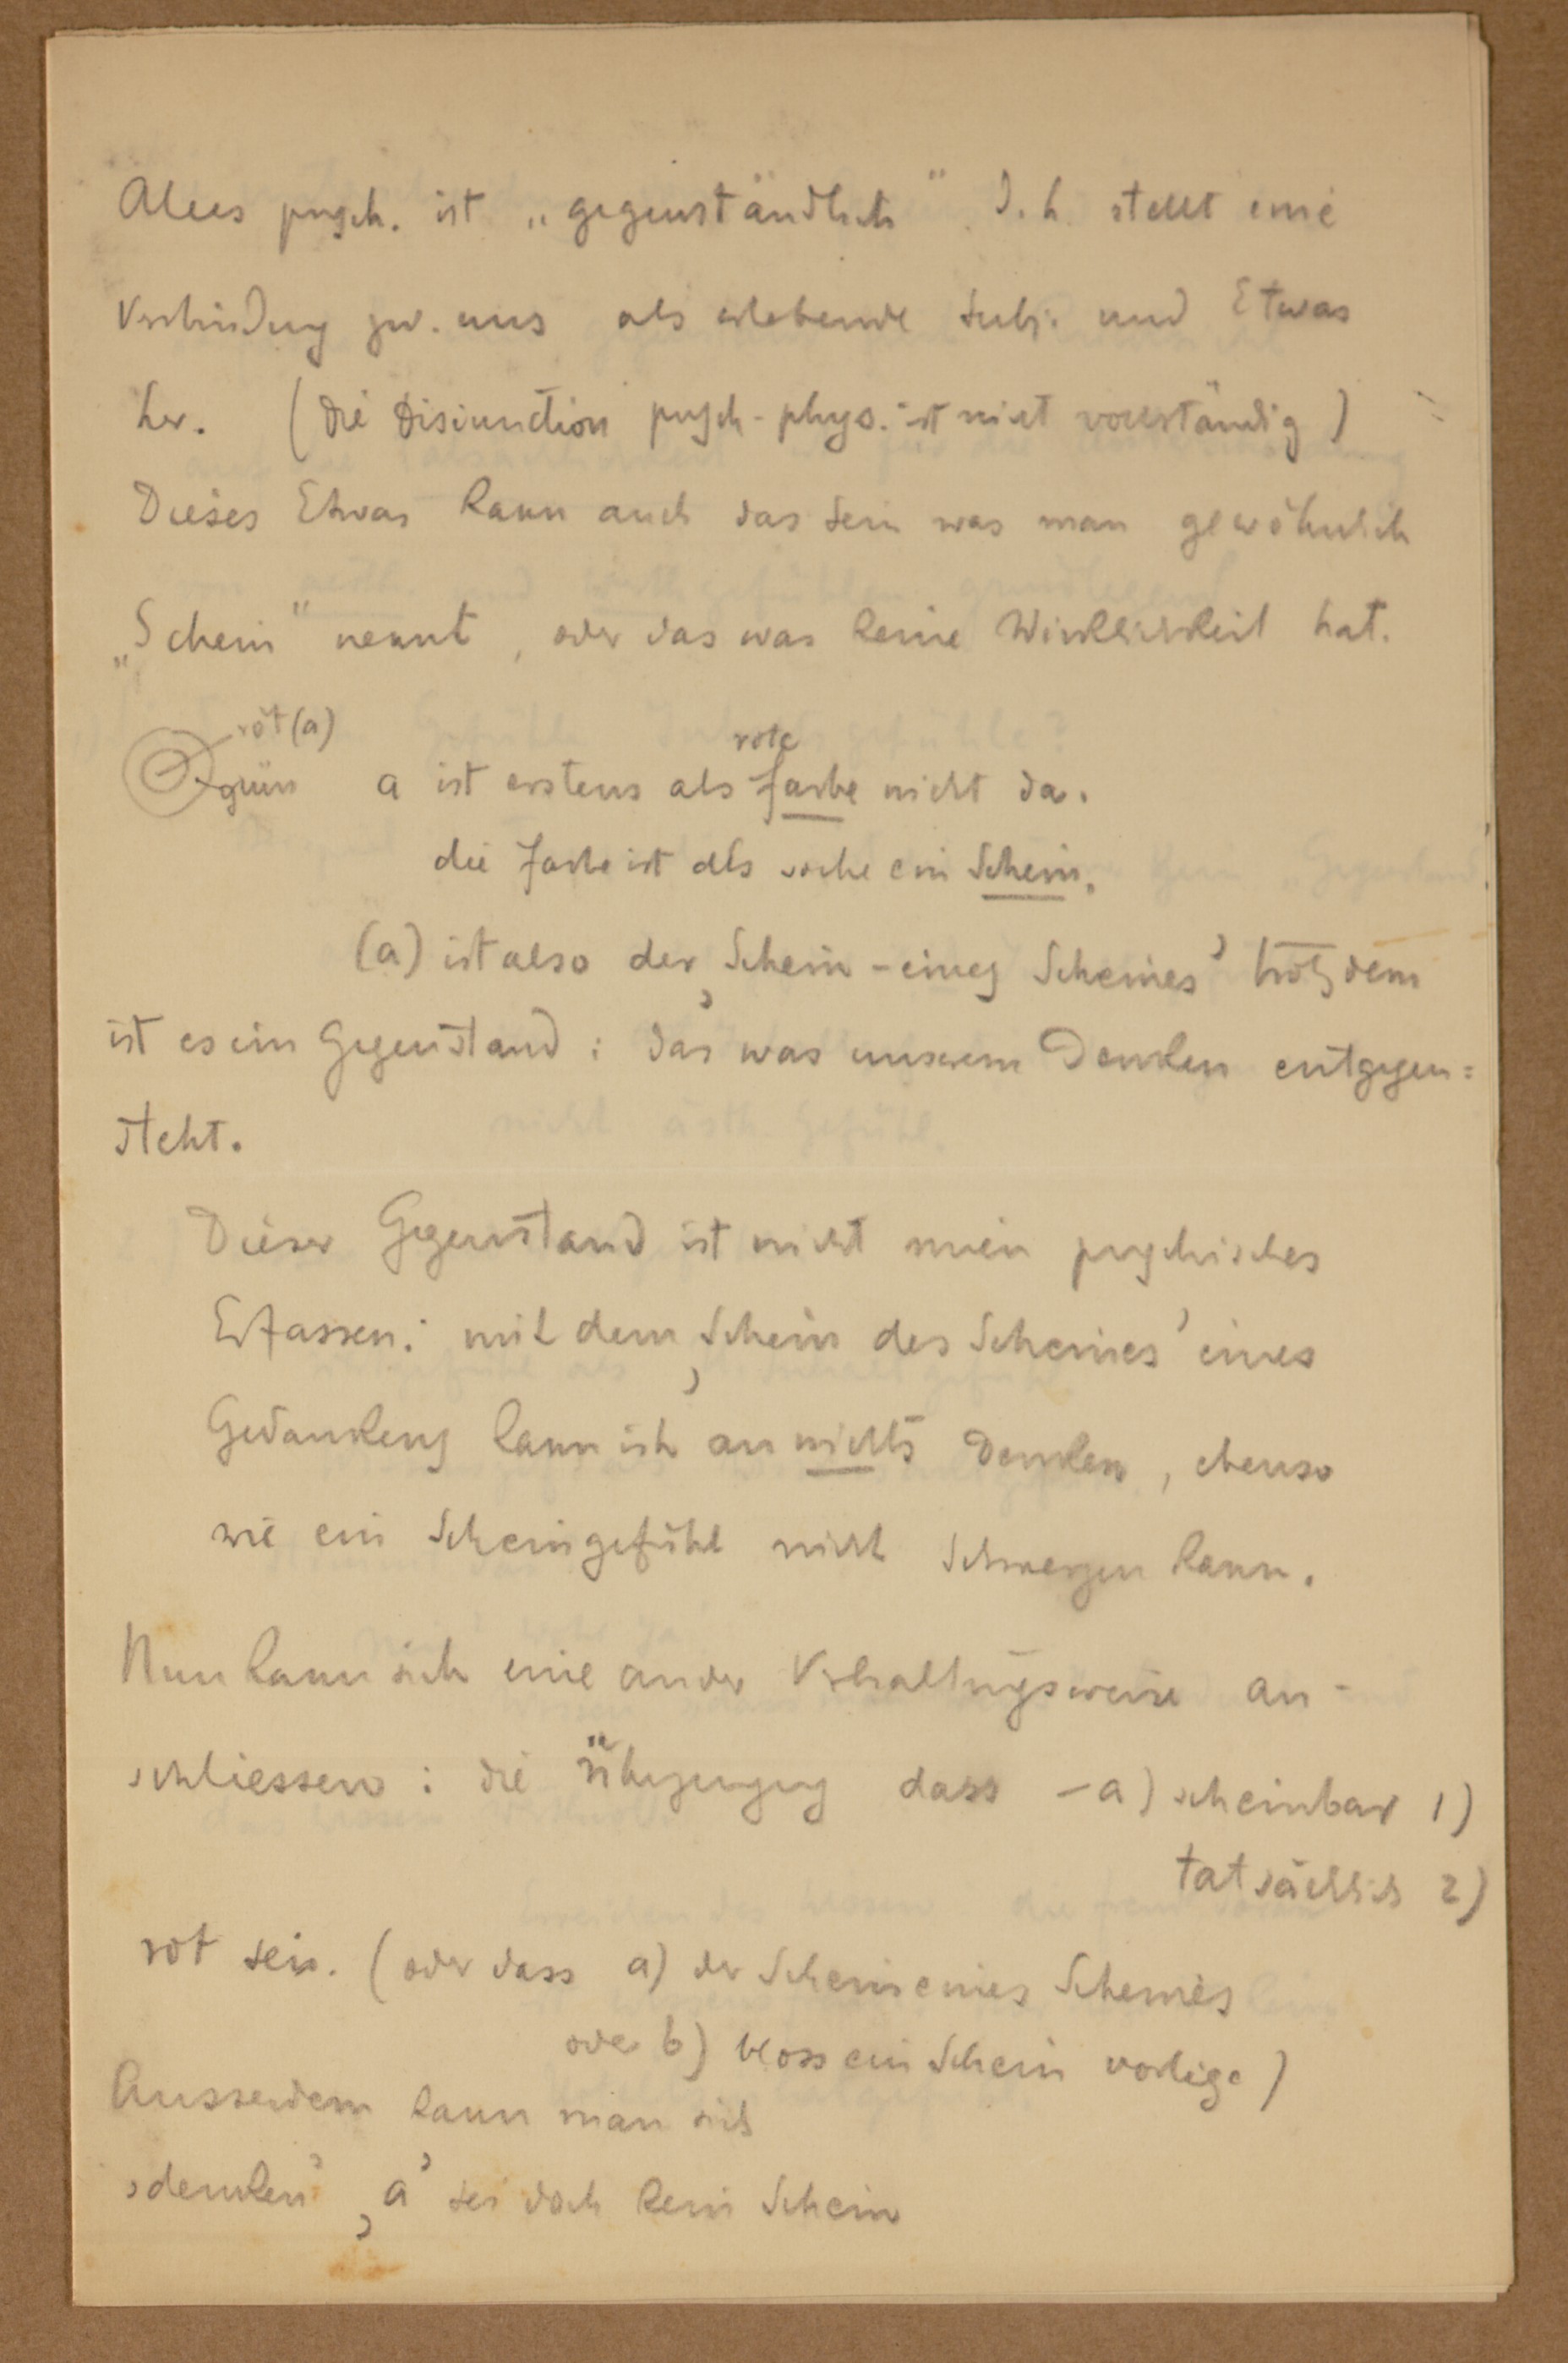 Alles psych. ist „gegenständlich". D. h. stellt eine
Verbindung zw. uns als erlebende Subj. und Etwas
her. (die Disiunction psych-phys. ist nicht vollständig)
Dieses Etwas kann auch das sein was man gewöhnlich
„Schein" nennt, oder das was keine Wirklichkeit hat.
rot (a)
rote
grün a ist erstens als Farbe nicht da.
die Farbe ist als solche ein Schein.
(a) ist also der ‚Schein - eines Scheines' trotzdem
ist es ein Gegenstand: das was unserem Denken entgegen=
steht.
Dieser Gegenstand ist nicht mein psychisches
Erfassen: mit dem ‚Schein des Scheines' eines
Gedankens kann ich an nichts denken, ebenso
wie ein Scheingefühl nicht schmerzen kann.
Nun kann sich eine ander Verhaltngsweise an-
schliessen: die Überzeugung dass - a) scheinbar 1)
tatsächlich 2)
rot sei. (oder dass a) der Schein eines Scheines
oder b) bloss ein Schein vorlige)
Ausserdem kann man sich
‚denken' ‚a' sei doch kein Schein